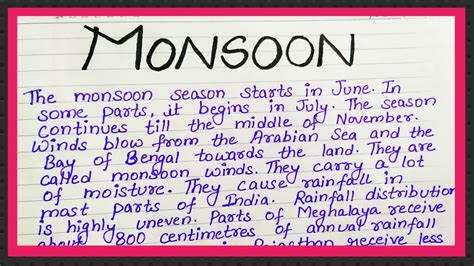 MONSOON
The monsoon season starts in June. In
some parts, it begins in July. The season
continues till the middle of November.
Winds blow from the Arabian Sea and the
Bay of Bengal towards the land. They are
called monsoon winds. They carry a lot
of moisture. They cause rainfall in
most parts of India. Rainfall distribution
is highly uneven. Parts of Meghalaya receive
about 800 centimetres of annual rainfall
Rajasthan receive less